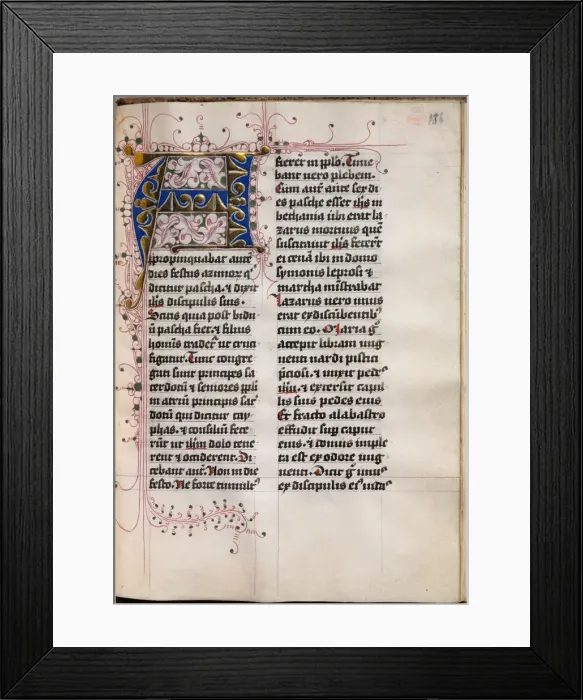 A
ppropinquabat autē
dies festus azimor q͛
dicitur pascha. ⁊ dixit
ihs discipulis suis.
Scitis quia post bidu
ū pascha fiet. ⁊ filius
hoīnis tradet᷑ ut cruci
figatur. Tunc congre
gati sunt principes sa
cerdotū ⁊ seniores ppli
in atriū principis sac͛
dotū qui dicitur cay
phas. ⁊ consiliū fece
rūt ut ihm dolo tene
rent ⁊ occiderent. Di
cebant aūt. Non in die
festo. Ne forte tumult᷒
fieret in pplo. Time
bant uero plebem.
Cum aūt ante sex di
es pasche esset ihs in
bethania ubi erat la
zarus mortuus quē
suscitauit ihs fecerūt
ei cenā ibi in domo
symonis leprosi ⁊
martha mīstrabat
Lazarus uero unus
erat ex discūbentib᷒
cum eo. Maria g͛
accepit libram ung
uenti nardi pistici
p̄ciosi. ⁊ unxit pedes
ihu. ⁊ extersit capil
lis suis pedes eius
Et fracto alabastro
effudit sup caput
eius. ⁊ domus imple
ta est ex odore ung
uenti. Dicit g͛ unus
ex discipulis ei᷒ iudas